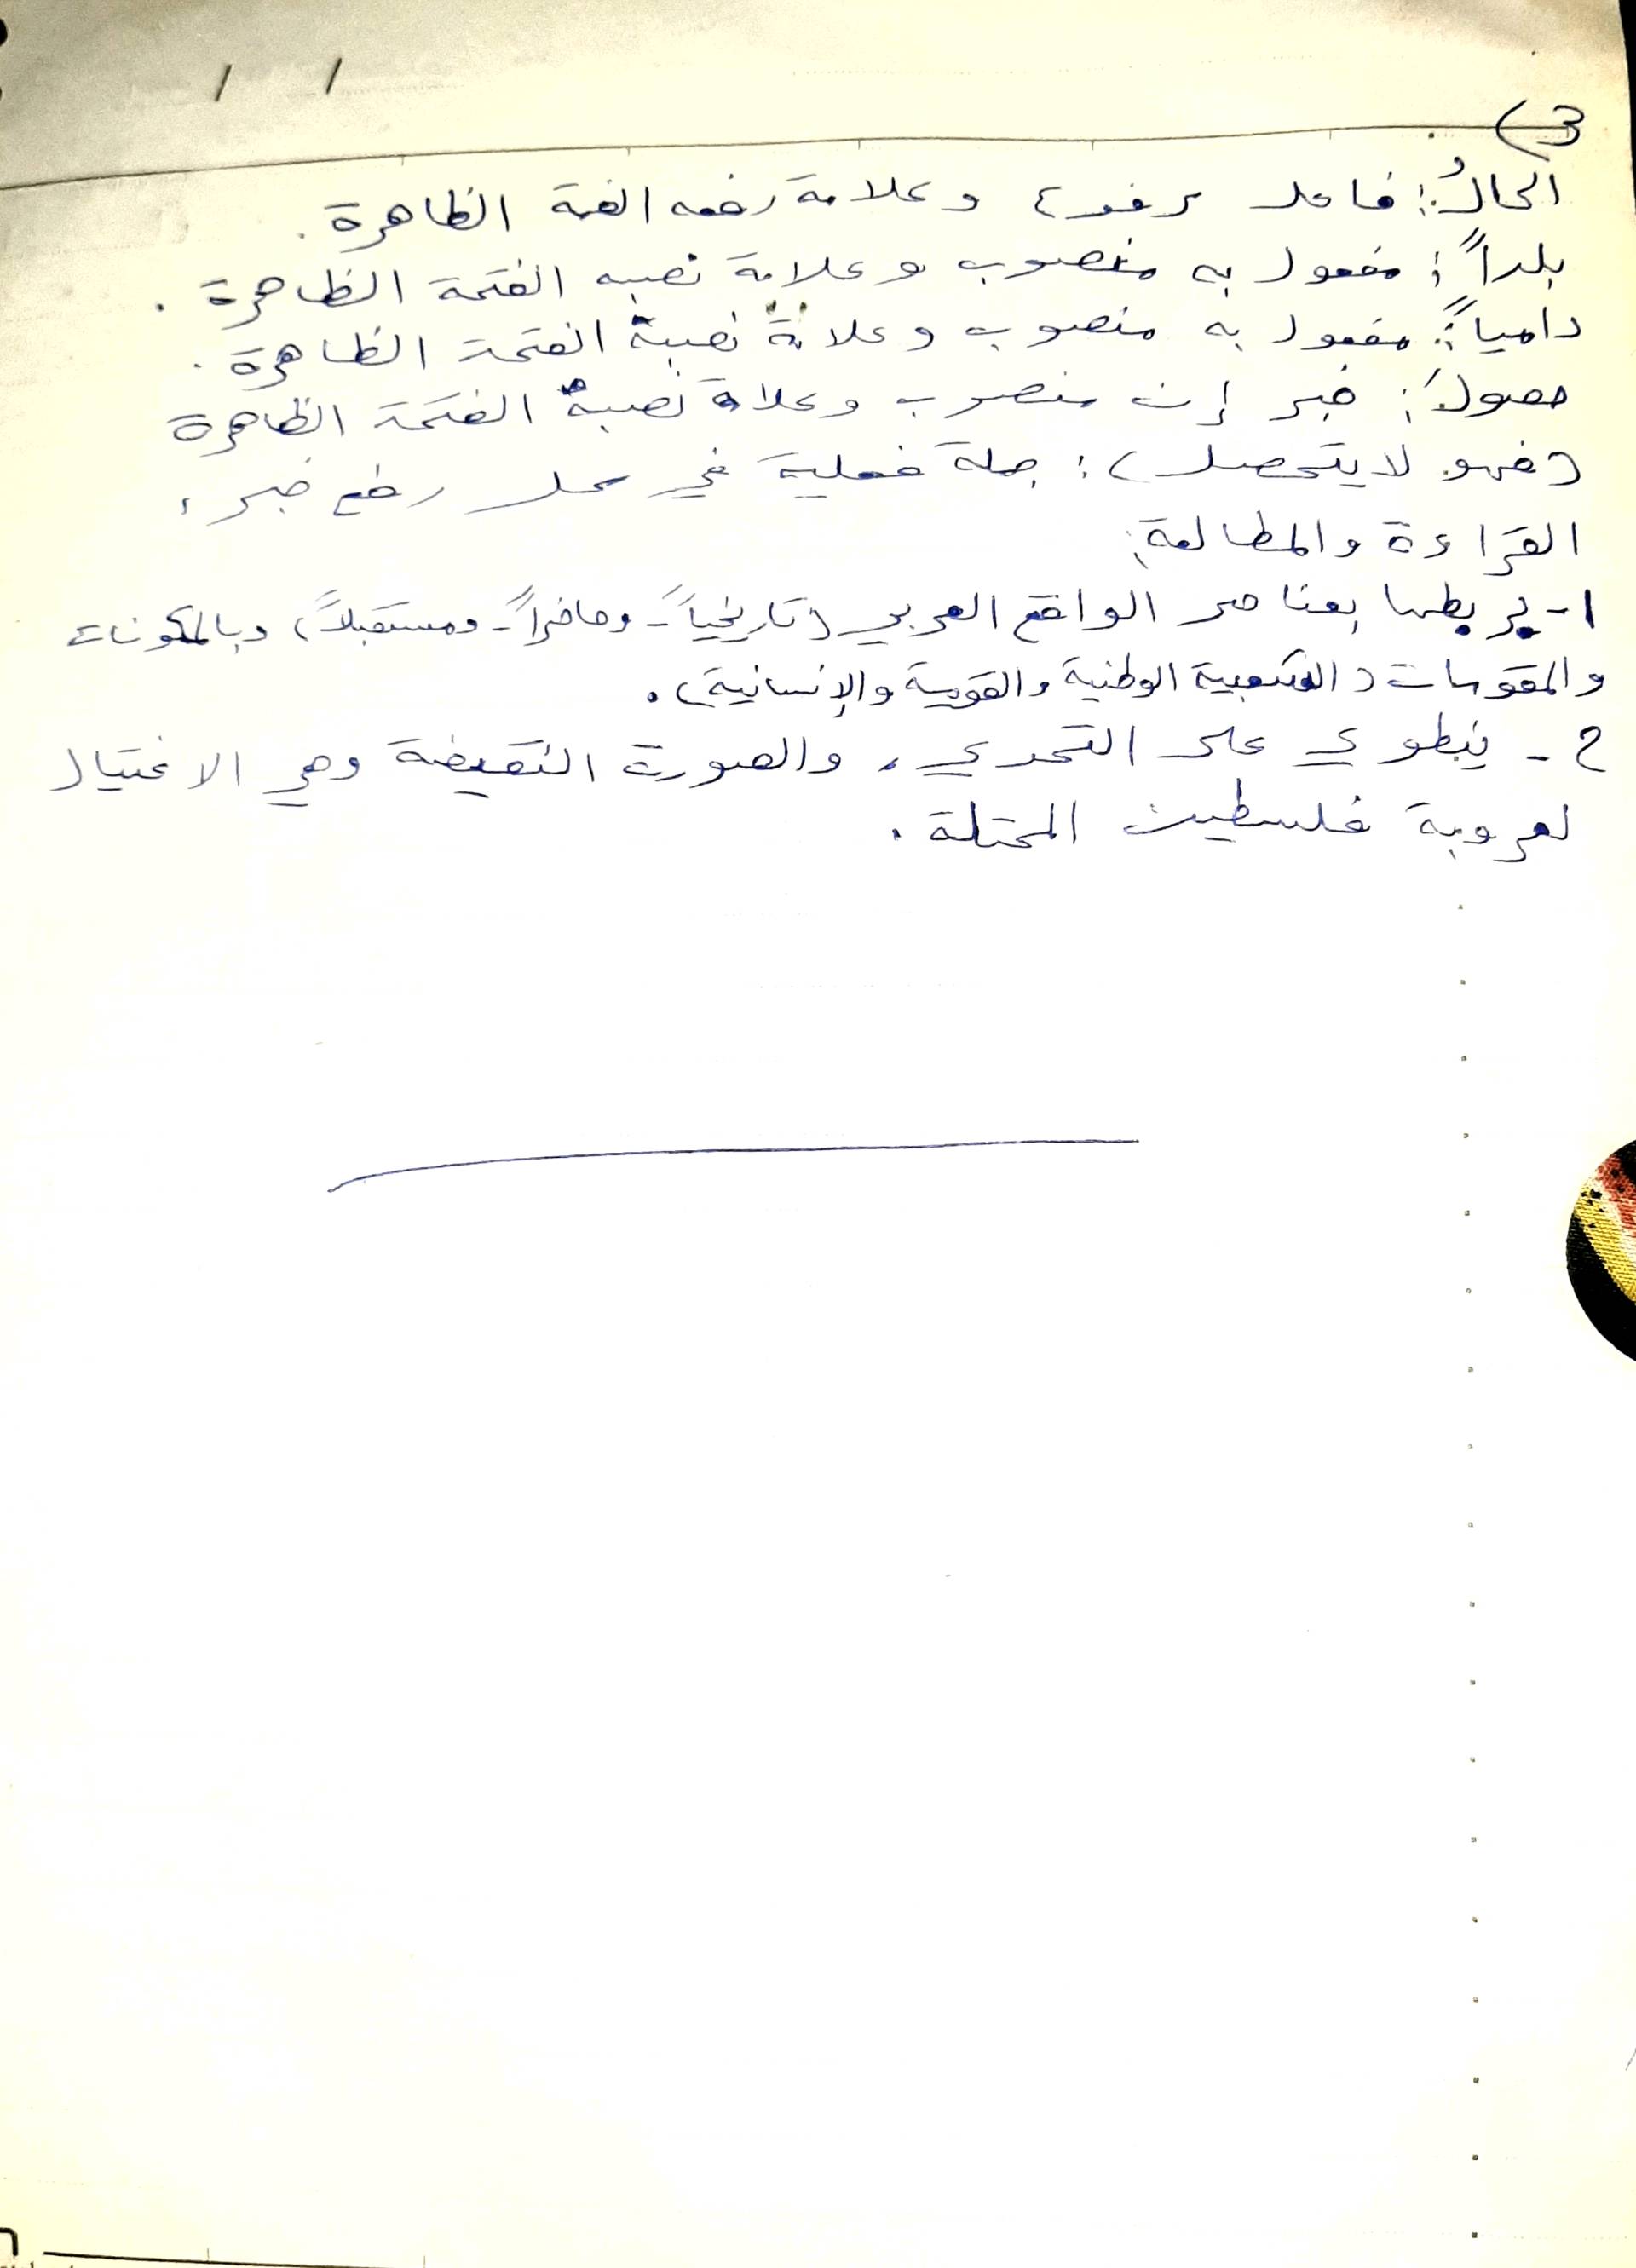 (3
الحالُ: فاعل مرفوع وعلامة رفعه الضمة الظاهرة .
بلداً: مفعول به منصوب وعلامة نصبه الفتحة الظاهرة .
دامياً: مفعول به منصوب وعلامة نصبة الفتحة الظاهرة .
حصولَ: خبر إن منصوب وعلامة نصبة الفتحة الظاهرة
(فهو لا يتحصل): جملة فعلية في محل رفع خبر .
القراءة والمطالعة:
1- يربطها بعناصر الواقع العربي (تاريخياً - وحاضراً - ومستقبلاً) وبالمكونات
والمقومات (الشعبية الوطنية والقومية والإنسانية).
2 - ينطوي على التحدي، والصورة النقيضة وهي الاغتيال
لعروبة فلسطين المحتلة .